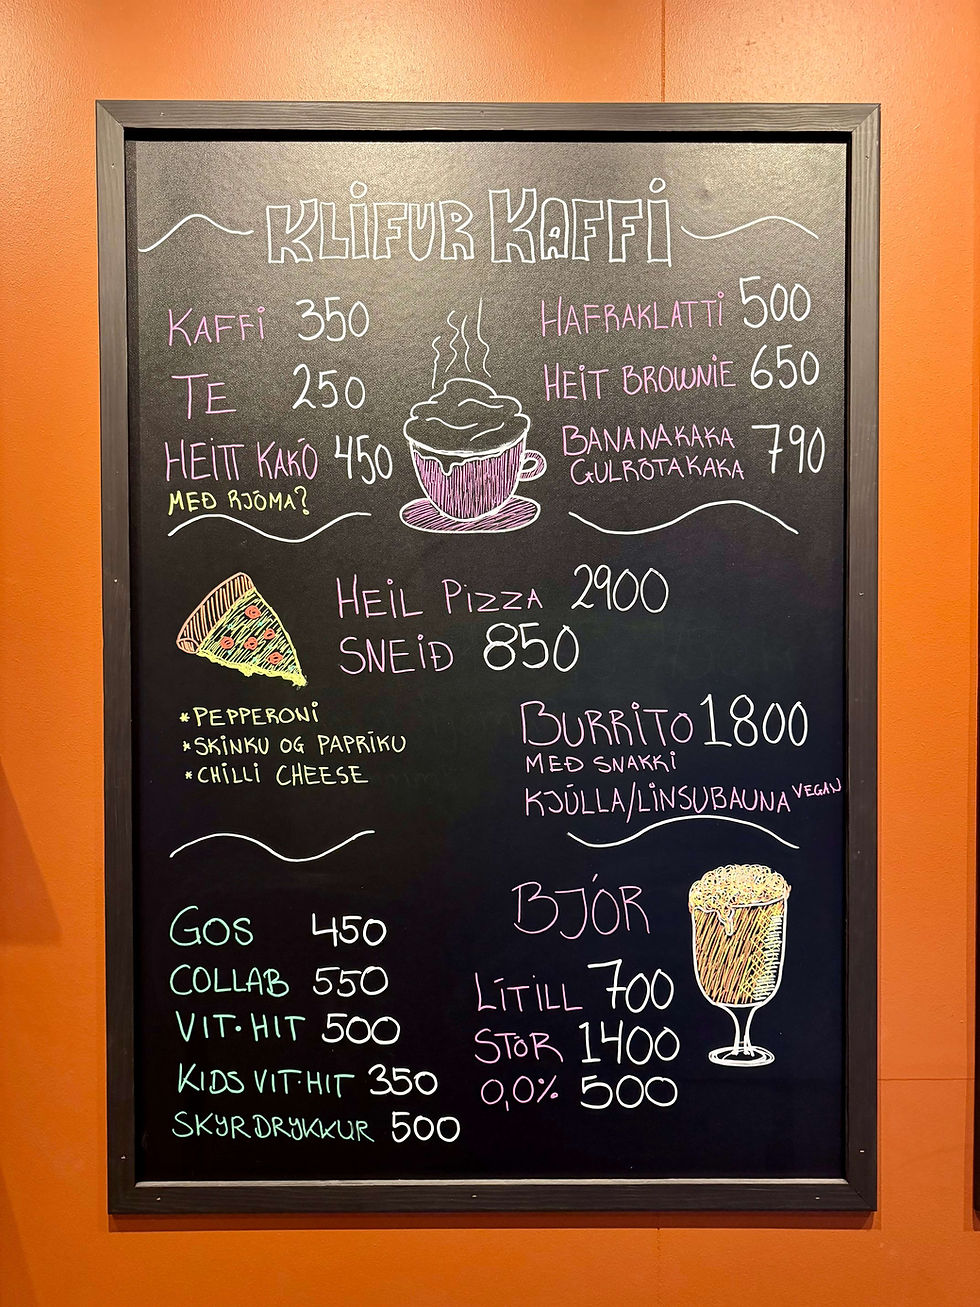 KLIFUR KAFFI
KAFFI 350
TE 250
HEITT KAKÓ 450
MEÐ RJÓMA?
HAFRAKLATTI 500
HEIT BROWNIE 650
BANANAKAKA
GULRÓTAKAKA 790
HEIL PIZZA 2900
SNEIÐ 850
*PEPPERONI
*SKINKU OG PAPRIKU
*CHILLI CHEESE
BURRITO 1800
MEÐ SNAKKI
KJÚLLA/LINSUBAUNA VEGAN
GOS 450
COLLAB 550
VIT·HIT 500
KIDS VIT·HIT 350
SKYRDRYKKUR 500
BJÓR
LÍTILL 700
STÓR 1400
0,0% 500